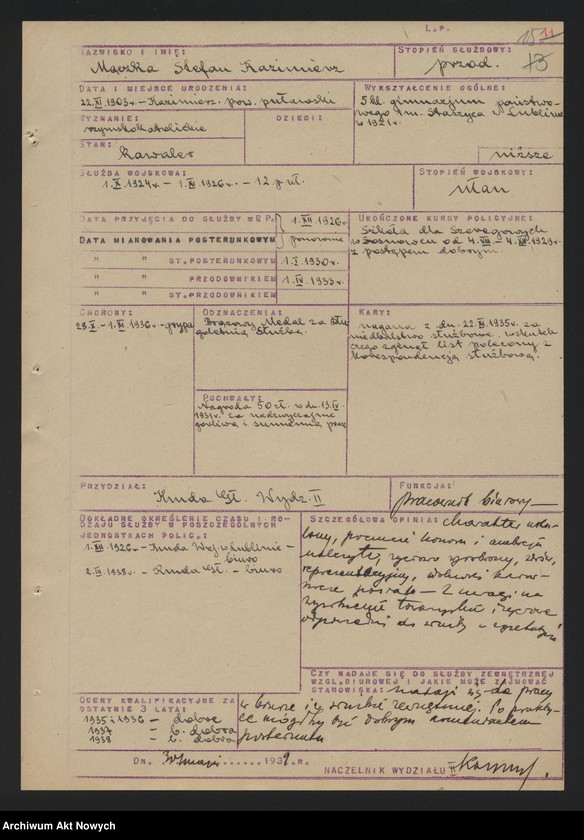 L.p.
15 11
13
NAZWISKO I IMIĘ:
Mączka Stefan Kazimierz
STOPIEŃ SŁUŻBOWY:
przod.
DATA I MIEJSCE URODZENIA:
22.XI.1903r. – Kazimierz. pow. puławski
WYKSZTAŁCENIE OGÓLNE:
5 kl. gimnazjum państwo-
wego im. Staszyca w Lublinie
w 1921r.
niższe
WYZNANIE:
rzymskokatolickie
DZIECI:
STAN:
kawaler
SŁUŻBA WOJSKOWA:
1.X.1924r – 1.XI.1926r. – 12 p. uł.
STOPIEŃ WOJSKOWY:
ułan
DATA PRZYJĘCIA DO SŁUŻBY W P.P.
1.XII.1926r.
DATA MIANOWANIA POSTERUNKOWYM
ponownie
" " ST.POSTERUNKOWYM
1.I.1930r.
" " PRZODOWNIKIEM
1.IV.1933r.
" " ST.PRZODOWNIKIEM
UKOŃCZONE KURSY POLICYJNE:
Szkoła dla Szeregowych
w Sosnowcu od 4.VII – 4.XII.1929r.
z postępem dobrym.
CHOROBY:
29.X. – 1.XI.1936r – grypa
ODZNACZENIA:
Brązowy Medal za dłu-
goletnią Służbę.
KARY:
nagana z dn. 22.XI.1935r. za
niedbalstwo służbowe, wskutek
czego zginął list polecony z
korespondencją służbową.
POCHWAŁY:
Nagroda 50 zł. w dn. 13.IV
1931r. za nadzwyczajne
gorliwą i sumienną pracę
PRZYDZIAŁ:
Kmda Gł. Wydz. II
FUNKCJA:
pracownik biurowy
DOKŁADNE OKREŚLENIE CZASU I RO-
DZAJU SŁUŻBY W POSZCZEGÓLNYCH
JEDNOSTKACH POLIC.:
1.XII.1926r – Kmda Woj. w Lublinie –
biuro
2.II.1938r. – Kmda Gł. – biuro
SZCZEGÓŁOWA OPINIA: charakter
poczucie honoru i ambicja
należyte, życiowo wyrobiony, zdrów,
reprezentacyjny,
Z uwagi na
wyrobienie towarzyskie i życiowe
odpowiedni do służby
CZY NADAJE SIĘ DO SŁUŻBY ZEWNĘTRZNEJ
WZGL.BIUROWEJ I JAKIE MOŻE ZAJMOWAĆ
STANOWISKA: nadaje się do pracy
w biurze i w służbie zewnętrznej. Po prakty-
ce mógłby być dobrym komendantem
posterunku
OCENY KWALIFIKACYJNE ZA
OSTATNIE 3 LATA:
1935 i 1936 – dobre
1937 – b. dobra
1938 – b. dobra
DN. 30 maja 1939.R.
NACZELNIK WYDZIAŁU II
Archiwum Akt Nowych